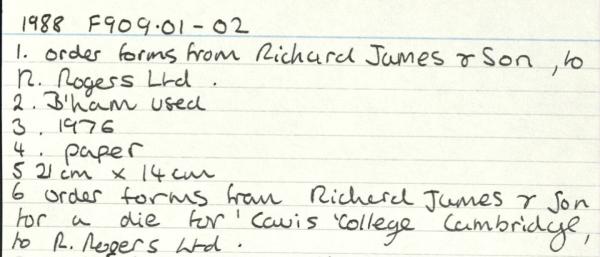 1988 F909.01-02
1. order forms from Richard James & Son, to
R. Rogers Ltd.
2. B'ham used
3. 1976
4. paper
5 21cm x 14cm
6 order forms from Richard James & Son
for a die for 'Cauis 'College Cambridge,
to R. Rogers Ltd.